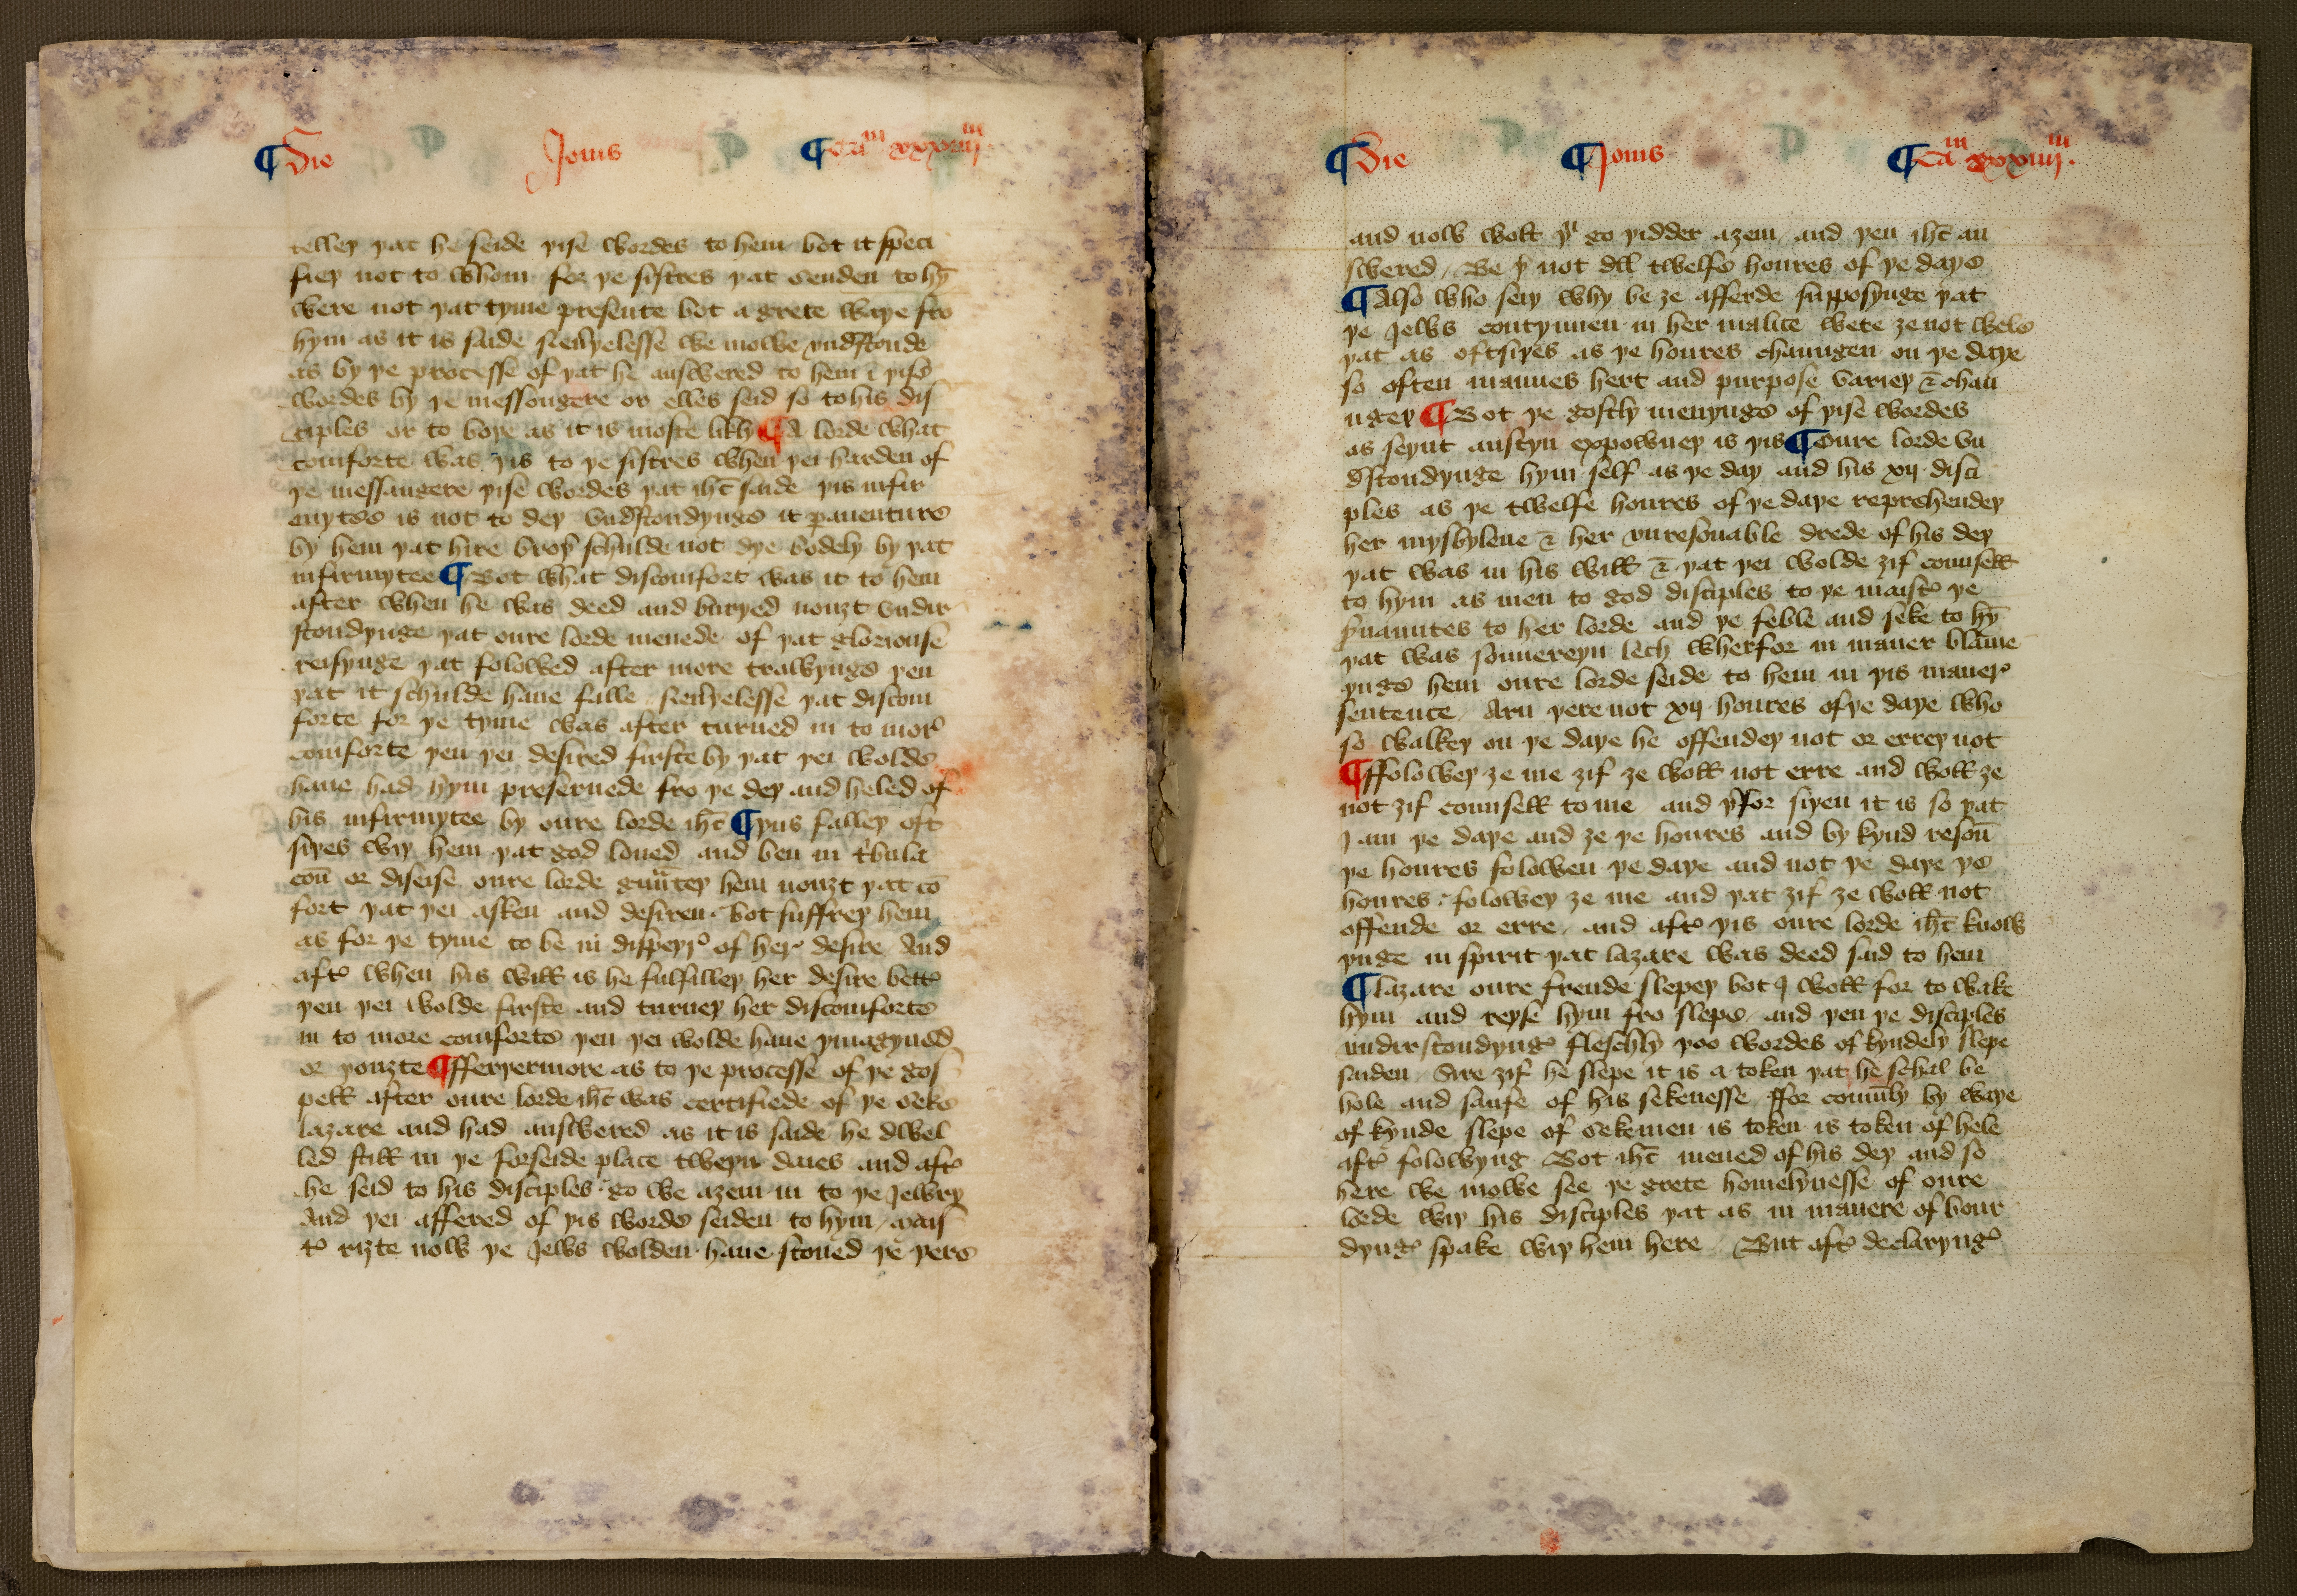 ¶ Die Jouis ¶ Cam xxxiiijm
telley yat he seide yise wordes to hem bot it speci
fiey not to whom for ye sistres yat senden to hȳ
were not yat tyme presente bot a grete waye fro
hym as it is saide neuyelesse we mowe vnd̾stonde
as by ye processe of yat he answered to hem ī yise
wordes by ye messongere or elles seid so to his dis
ciples or to boye as it is moste likly ¶ A lorde what
comforte was yis to ye sistres when yei harden of
ye messangere yise wordes yat ihc̄ saide yis infir
mytee is not to dey vnd̾stondynge it pauenture
by hem yat hire broy̾ schulde not dye bodely by yat
infirmytee ¶ Bot what discomfort was it to hem
after when he was deed and buryed nouzt vndir
stondynge yat oure lorde menede of yat gloriouse
reisynge yat folowed after more trowynge yen
yat it schulde haue falle neuyelesse yat discom
forte for ye tyme was after turned in to mor̾
comforte yen yei desired firste by yat yei wolde
haue had hym preseruede fro ye dey and heled of
his infirmytee by oure lorde ihc̄ ¶ yus falley oft
siyes wiy hem yat god loued and ben in t̾bula
coū or diseise oure lorde gūntey hem nouzt yat cō
fort yat yei asken and desiren bot suffrey hem
as for ye tyme to be in dispeyr̾ of her̾ desire And
aft̾ when his will is he fulfilley her desire bett̾
yen yei wolde firste and turney her discomforte
in to more comforte yen yei wolde haue ymagyned
or youzte ¶ fferyermore as to ye processe of ye gos
pell after oure lorde ihc̄ was certifiede of ye seke
lazare and had answered as it is saide he dwel
led still in ye forseide place tweyn daies and aft̾
he seid to his disciples go we azein in to ye Jewry
And yei affered of yis worde seiden to hym mais
t̾ rizte now ye Jews wolden haue stoned ye yere
¶ Die ¶ Jouis ¶ Cam xxxiiijm
and now wolt yu go yidder azein and yen ihc̄ an
swered Be y̾ not all twelfe houres of ye daye
¶ Also who seiy why be ze afferde supposynge yat
ye Jews contynuen in her malice wete ze not wele
yat as oftsiyes as ye houres chaungen on ye daye
so often mannes hert and purpose variey & chau
ngey ¶ Bot ye gostly menynge of yise wordes
as seynt austyn expowney is yis ¶ Oure lorde vn
d̾stondynge hym self as ye day and his xij disci
ples as ye twelfe houres of ye daye reprehendey
her mysbyleue & her vnresonable drede of his dey
yat was in his will & yat yei wolde zif counsell
to hym as men to god disciples to ye maist̾ ye
s̾uauntes to her lorde and ye feble and seke to hȳ
yat was souuereyn lech wherfor in maner blame
ynge hem oure lorde seide to hem in yis maner̾
sentence Arn yere not xij houres of ye daye who
so walkey on ye daye he offendey not or errey not
¶ ffolowey ze me zif ze woll not erre and woll ze
not zif counsell to me and y̾for siyen it is so yat
I am ye daye and ze ye houres and by kynd resoū
ye houres folowen ye daye and not ye daye ye
houres folowey ze me and yat zif ze woll not
offende or erre and aft̾ yis oure lorde ihc̄ know
ynge in spirit yat lazare was deed said to hem
¶ lazare oure frende slepey bot I woll for to wake
hym and reyse hym fro slepe and yen ye disciples
vnderstondyng̾ fleschly yoo wordes of kyndely slepe
saiden Sire zif he slepe it is a token yat he schal be
hole and saufe of his sekenesse ffor comūly by waye
of kynde slepe of sekemen is token is token of hele
aft̾ folowyng Bot ihc̄ mened of his dey and so
here we mowe see ye grete homelynesse of oure
lorde wiy his disciples yat as in manere of bour
dyng̾ spake wiy hem here But aft̾ declaryng̾